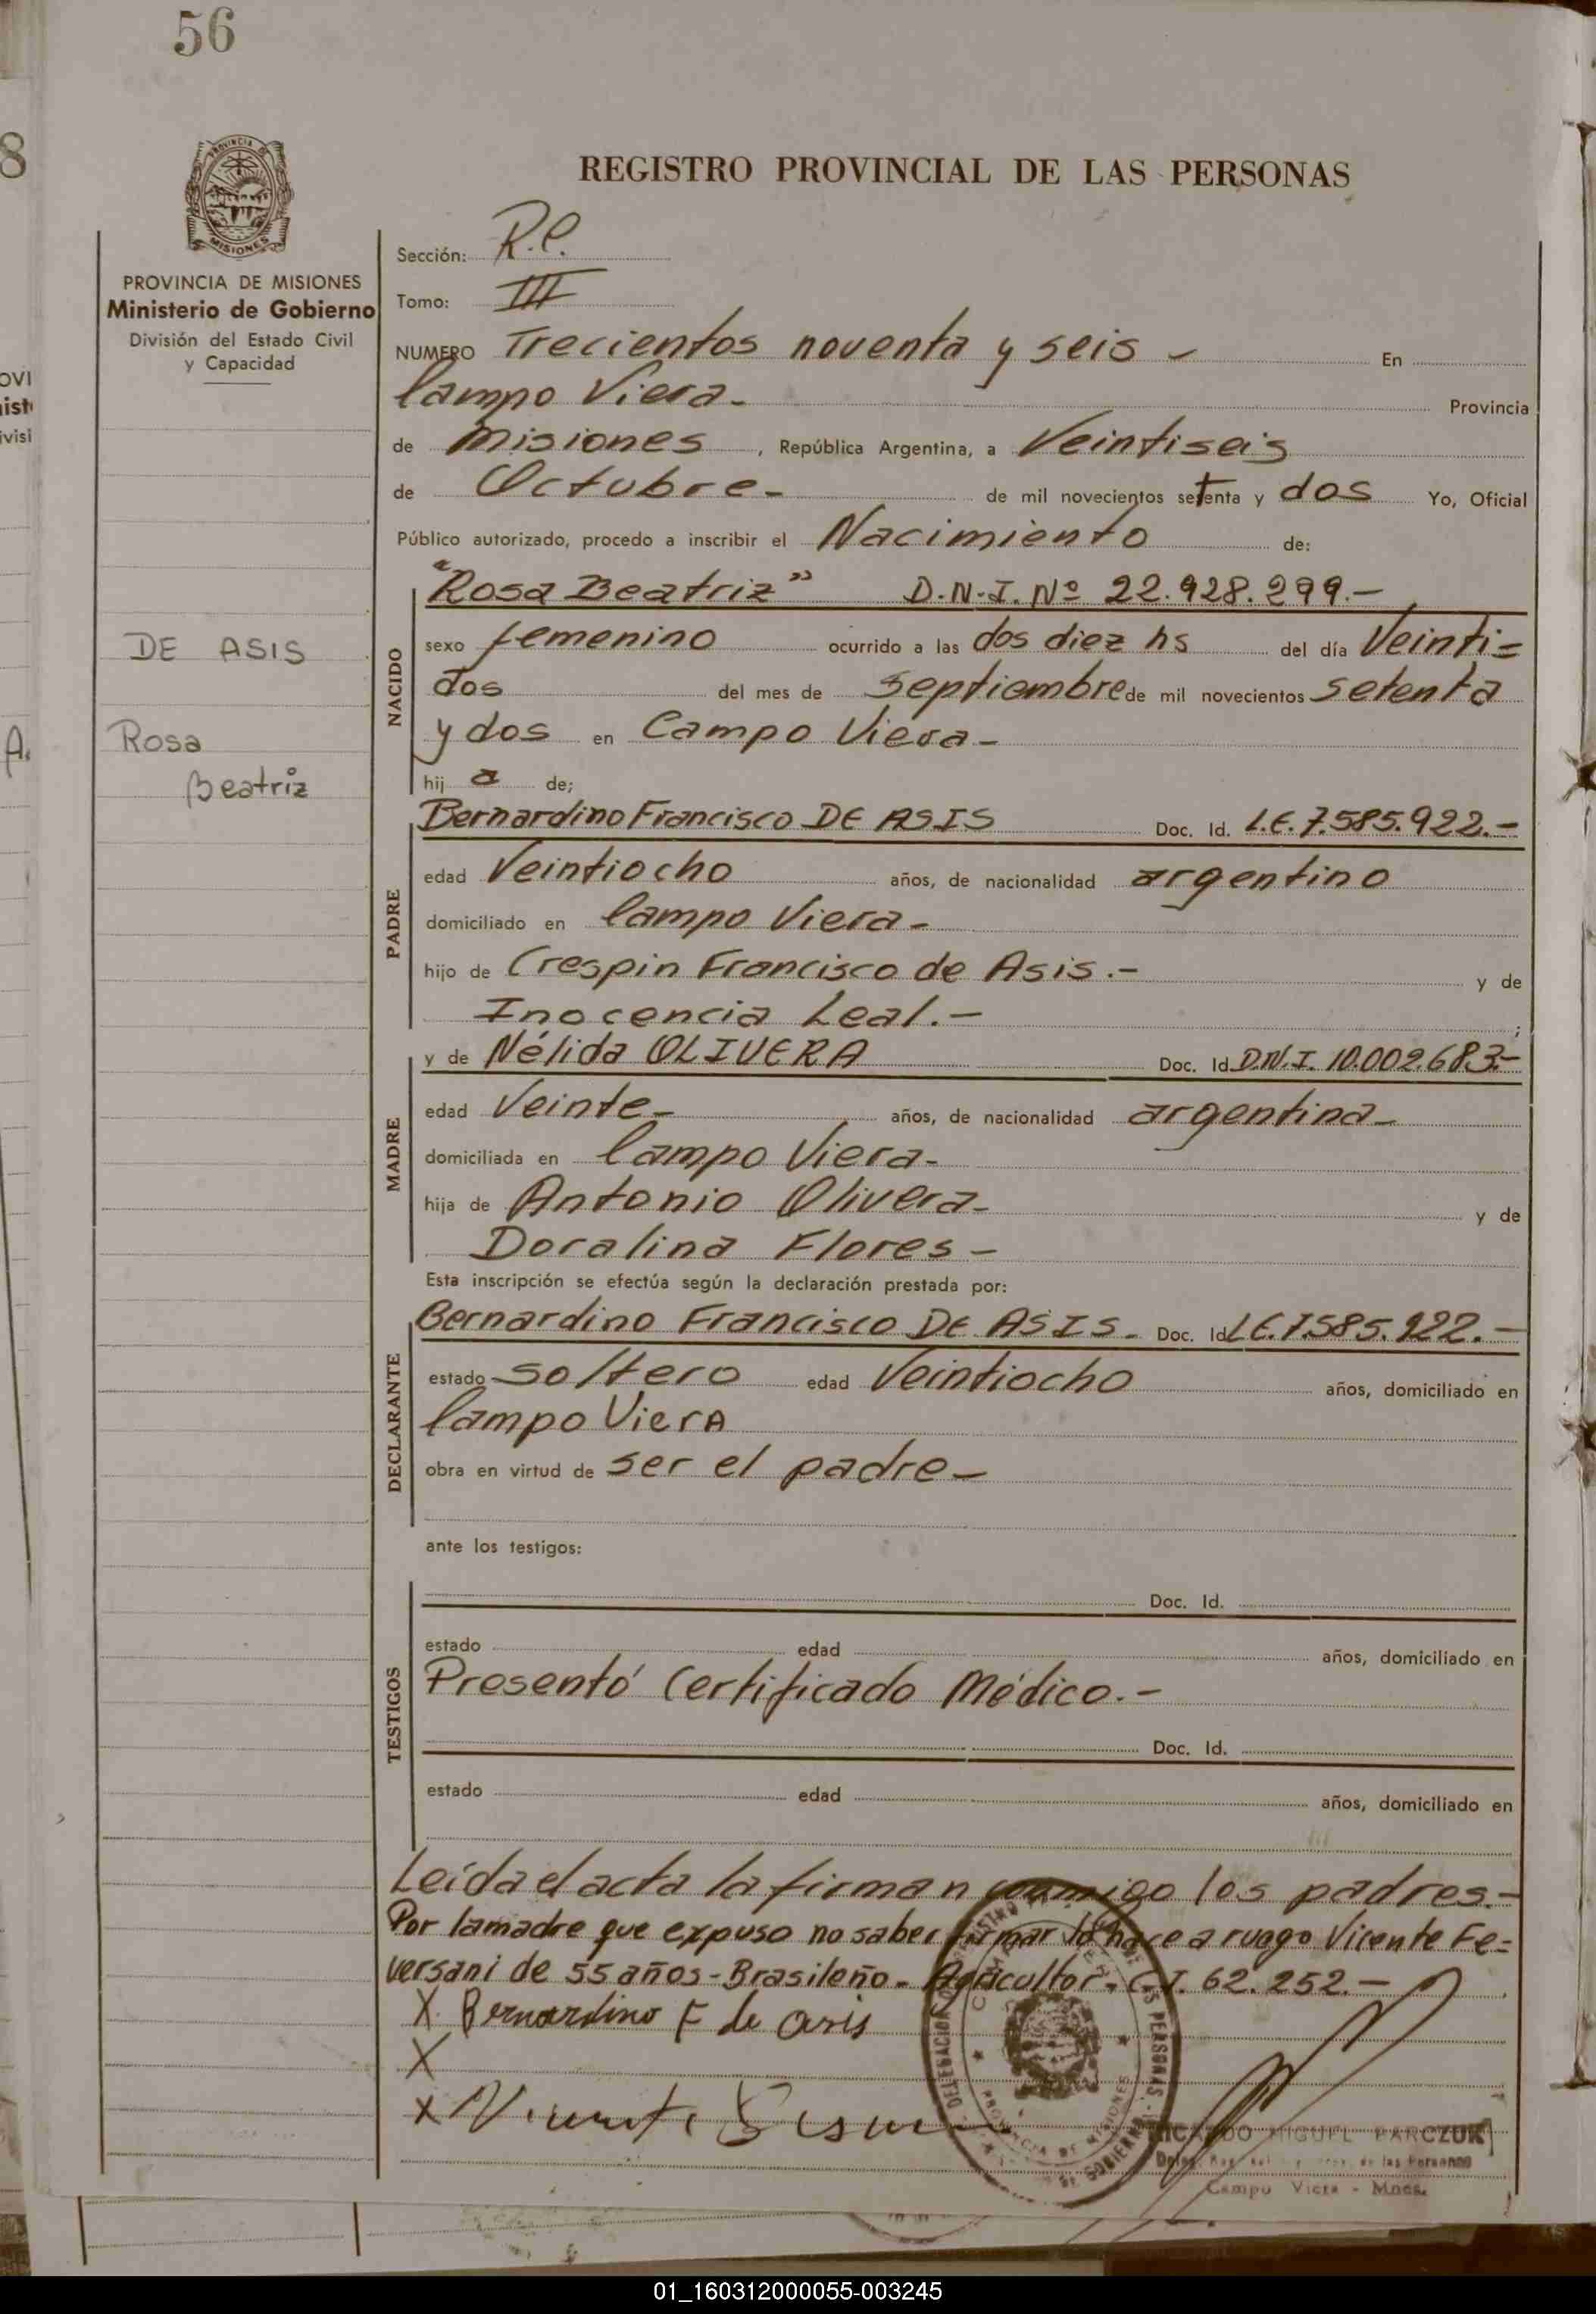 56
8
REGISTRO PROVINCIAL DE LAS PERSONAS
PROVINCIA DE MISIONES
Ministerio de Gobierno
División del Estado Civil
y Capacidad
Sección: R.C.
Tomo: III
NUMERO Trecientos noventa y seis - En
Campo Viera-
Provincia
de Misiones, República Argentina, a Veintiseis
de Octubre- de mil novecientos setenta y dos Yo, Oficial
Público autorizado, procedo a inscribir el Nacimiento de:
"Rosa Beatriz" D.N.I. Nº 22.928.299.-
DE ASIS
Rosa
Beatriz
NACIDO
sexo femenino ocurrido a las dos diez hs del día Veinti=
dos del mes de Septiembre de mil novecientos setenta
y dos en Campo Viera-
hij a de;
PADRE
Bernardino Francisco DE ASIS Doc. Id. L.E. 7.585.922.-
edad Veintiocho años, de nacionalidad argentino
domiciliado en Campo Viera-
hijo de Crespin Francisco de Asis.- y de
Inocencia Leal.- ;
MADRE
y de Nélida OLIVERA Doc. Id. D.N.I. 10.002.683-
edad Veinte- años, de nacionalidad argentina-
domiciliada en Campo Viera-
hija de Antonio Olivera- y de
Doralina Flores-
Esta inscripción se efectúa según la declaración prestada por:
DECLARANTE
Bernardino Francisco DE ASIS. Doc. Id L.E. 7.585.922.-
estado soltero edad Veintiocho años, domiciliado en
Campo VierA
obra en virtud de ser el padre-
ante los testigos:
TESTIGOS
Doc. Id.
estado edad años, domiciliado en
Presentó Certificado Médico.-
Doc. Id.
estado edad años, domiciliado en
Leída el acta la firman conmigo los padres.-
Por la madre que expuso no saber firmar lo hace a ruego Vicente Fe=
versani de 55 años - Brasileño - Agricultor - C.I. 62.252.-
X Bernardino F de Asis
X
X Vicente
PROVINCIA DE MISIONES
RICARDO MIGUEL PARCZUK
de las Personas
Campo Viera - Mnes.
01_160312000055-003245